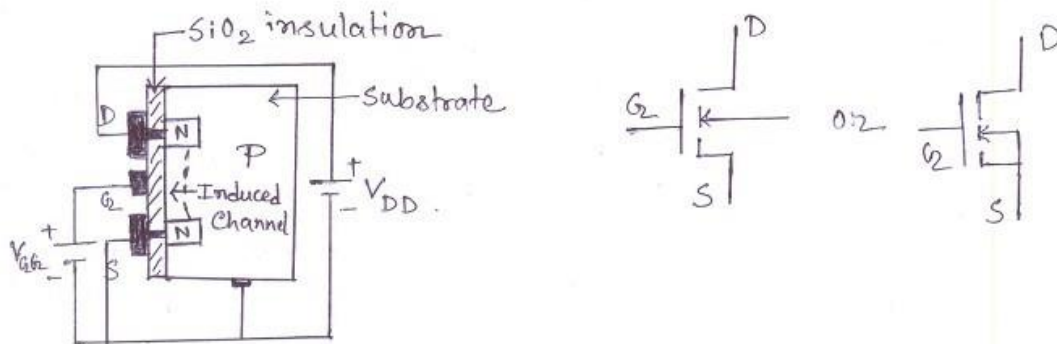 SiO₂ insulation
Substrate
D
N
P
+
V_DD
-
G
Induced
Channel
N
+
V_GG
-
S
D
G
S
or
D
G
S